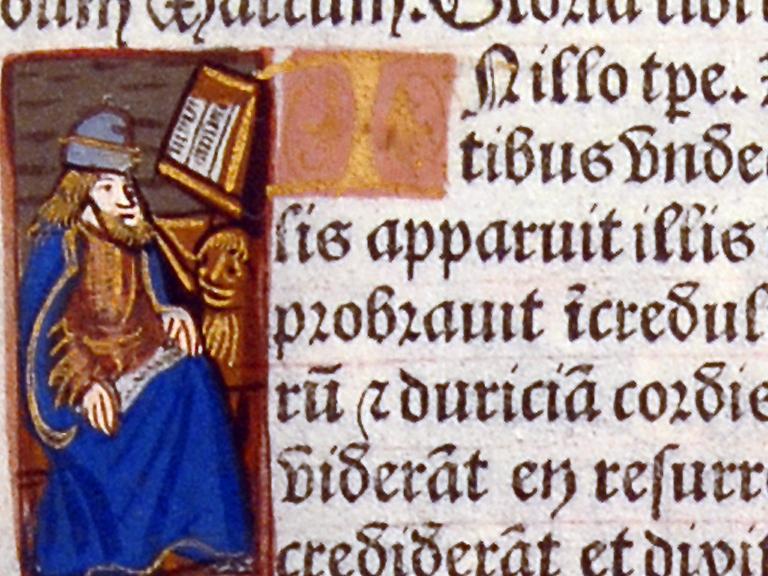 Marcum. Gloria tibi
IN illo tp̄e.
tibus vnde
lis apparuit illis
probrauit īcredul
rū ⁊ duriciā cordis
viderāt eū resurre
crediderāt et dixit